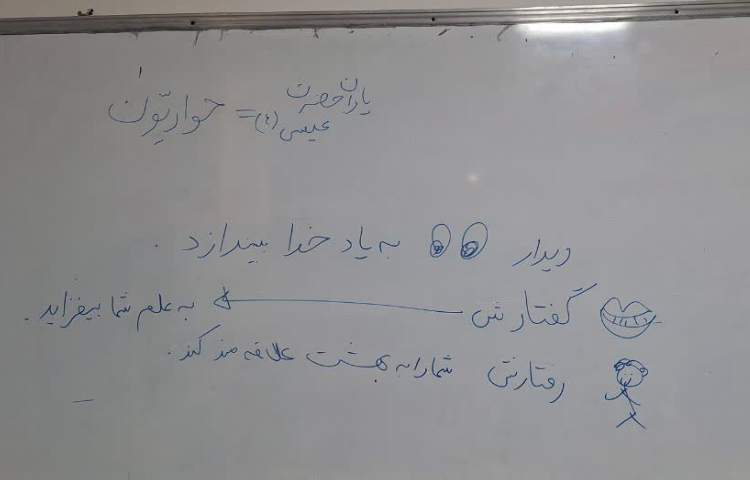 یاران حضرت عیسی (ع) = حواریّون
دیدار به یاد خدا بیندازد.
گفتارش به علم شما بیفزاید.
رفتارش شما را به بهشت علاقه مند کند.